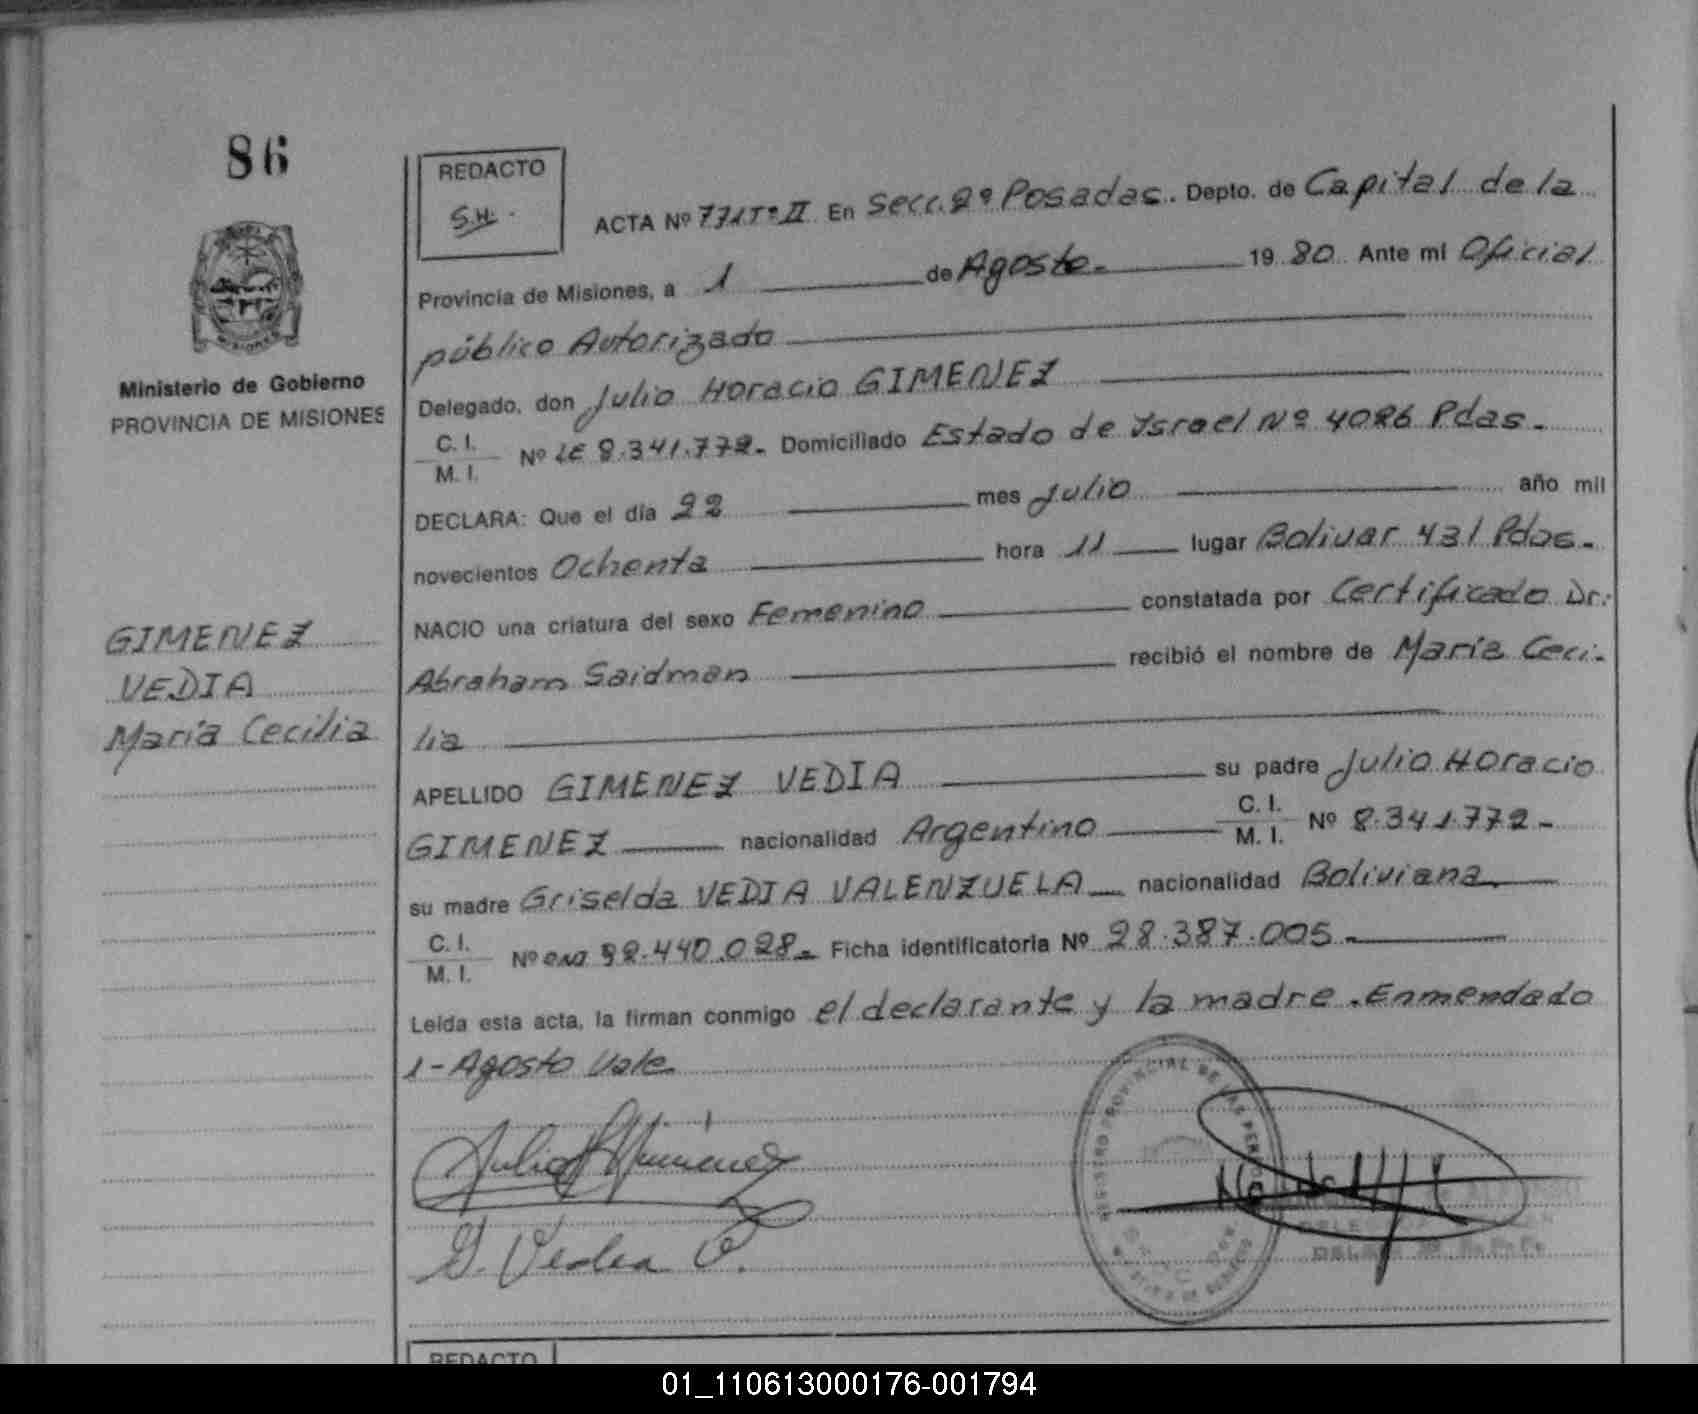 86
REDACTO
S.H.
ACTA Nº 771 Tº II En Secc. 2ª Posadas. Depto. de Capital de la
Provincia de Misiones, a 1 de Agosto. 19 80 Ante mi Oficial
público Autorizado
Delegado, don Julio Horacio GIMENEZ
C. I.
M. I. Nº LE 8.341.772. Domiciliado Estado de Israel Nº 4086 Pdas.
DECLARA: Que el día 22 mes Julio año mil
novecientos Ochenta hora 11 lugar Bolivar 431 Pdas.
NACIO una criatura del sexo Femenino constatada por Certificado Dr.
Abraham Saidman recibió el nombre de María Ceci-
lia
APELLIDO GIMENEZ VEDIA su padre Julio Horacio
GIMENEZ nacionalidad Argentino C. I.
M. I. Nº 8.341.772.-
su madre Griselda VEDIA VALENZUELA nacionalidad Boliviana
C. I.
M. I. Nº DNI 92.440.028. Ficha identificatoria Nº 28.387.005.-
Leída esta acta, la firman conmigo el declarante y la madre. Enmendado
1 - Agosto Vale.
Julio H Gimenez
G. Vedia V.
REGISTRO PROVINCIAL DE LAS PERSONAS
Ministerio de Gobierno
PROVINCIA DE MISIONES
GIMENEZ
VEDIA
María Cecilia
REDACTO
01_110613000176-001794